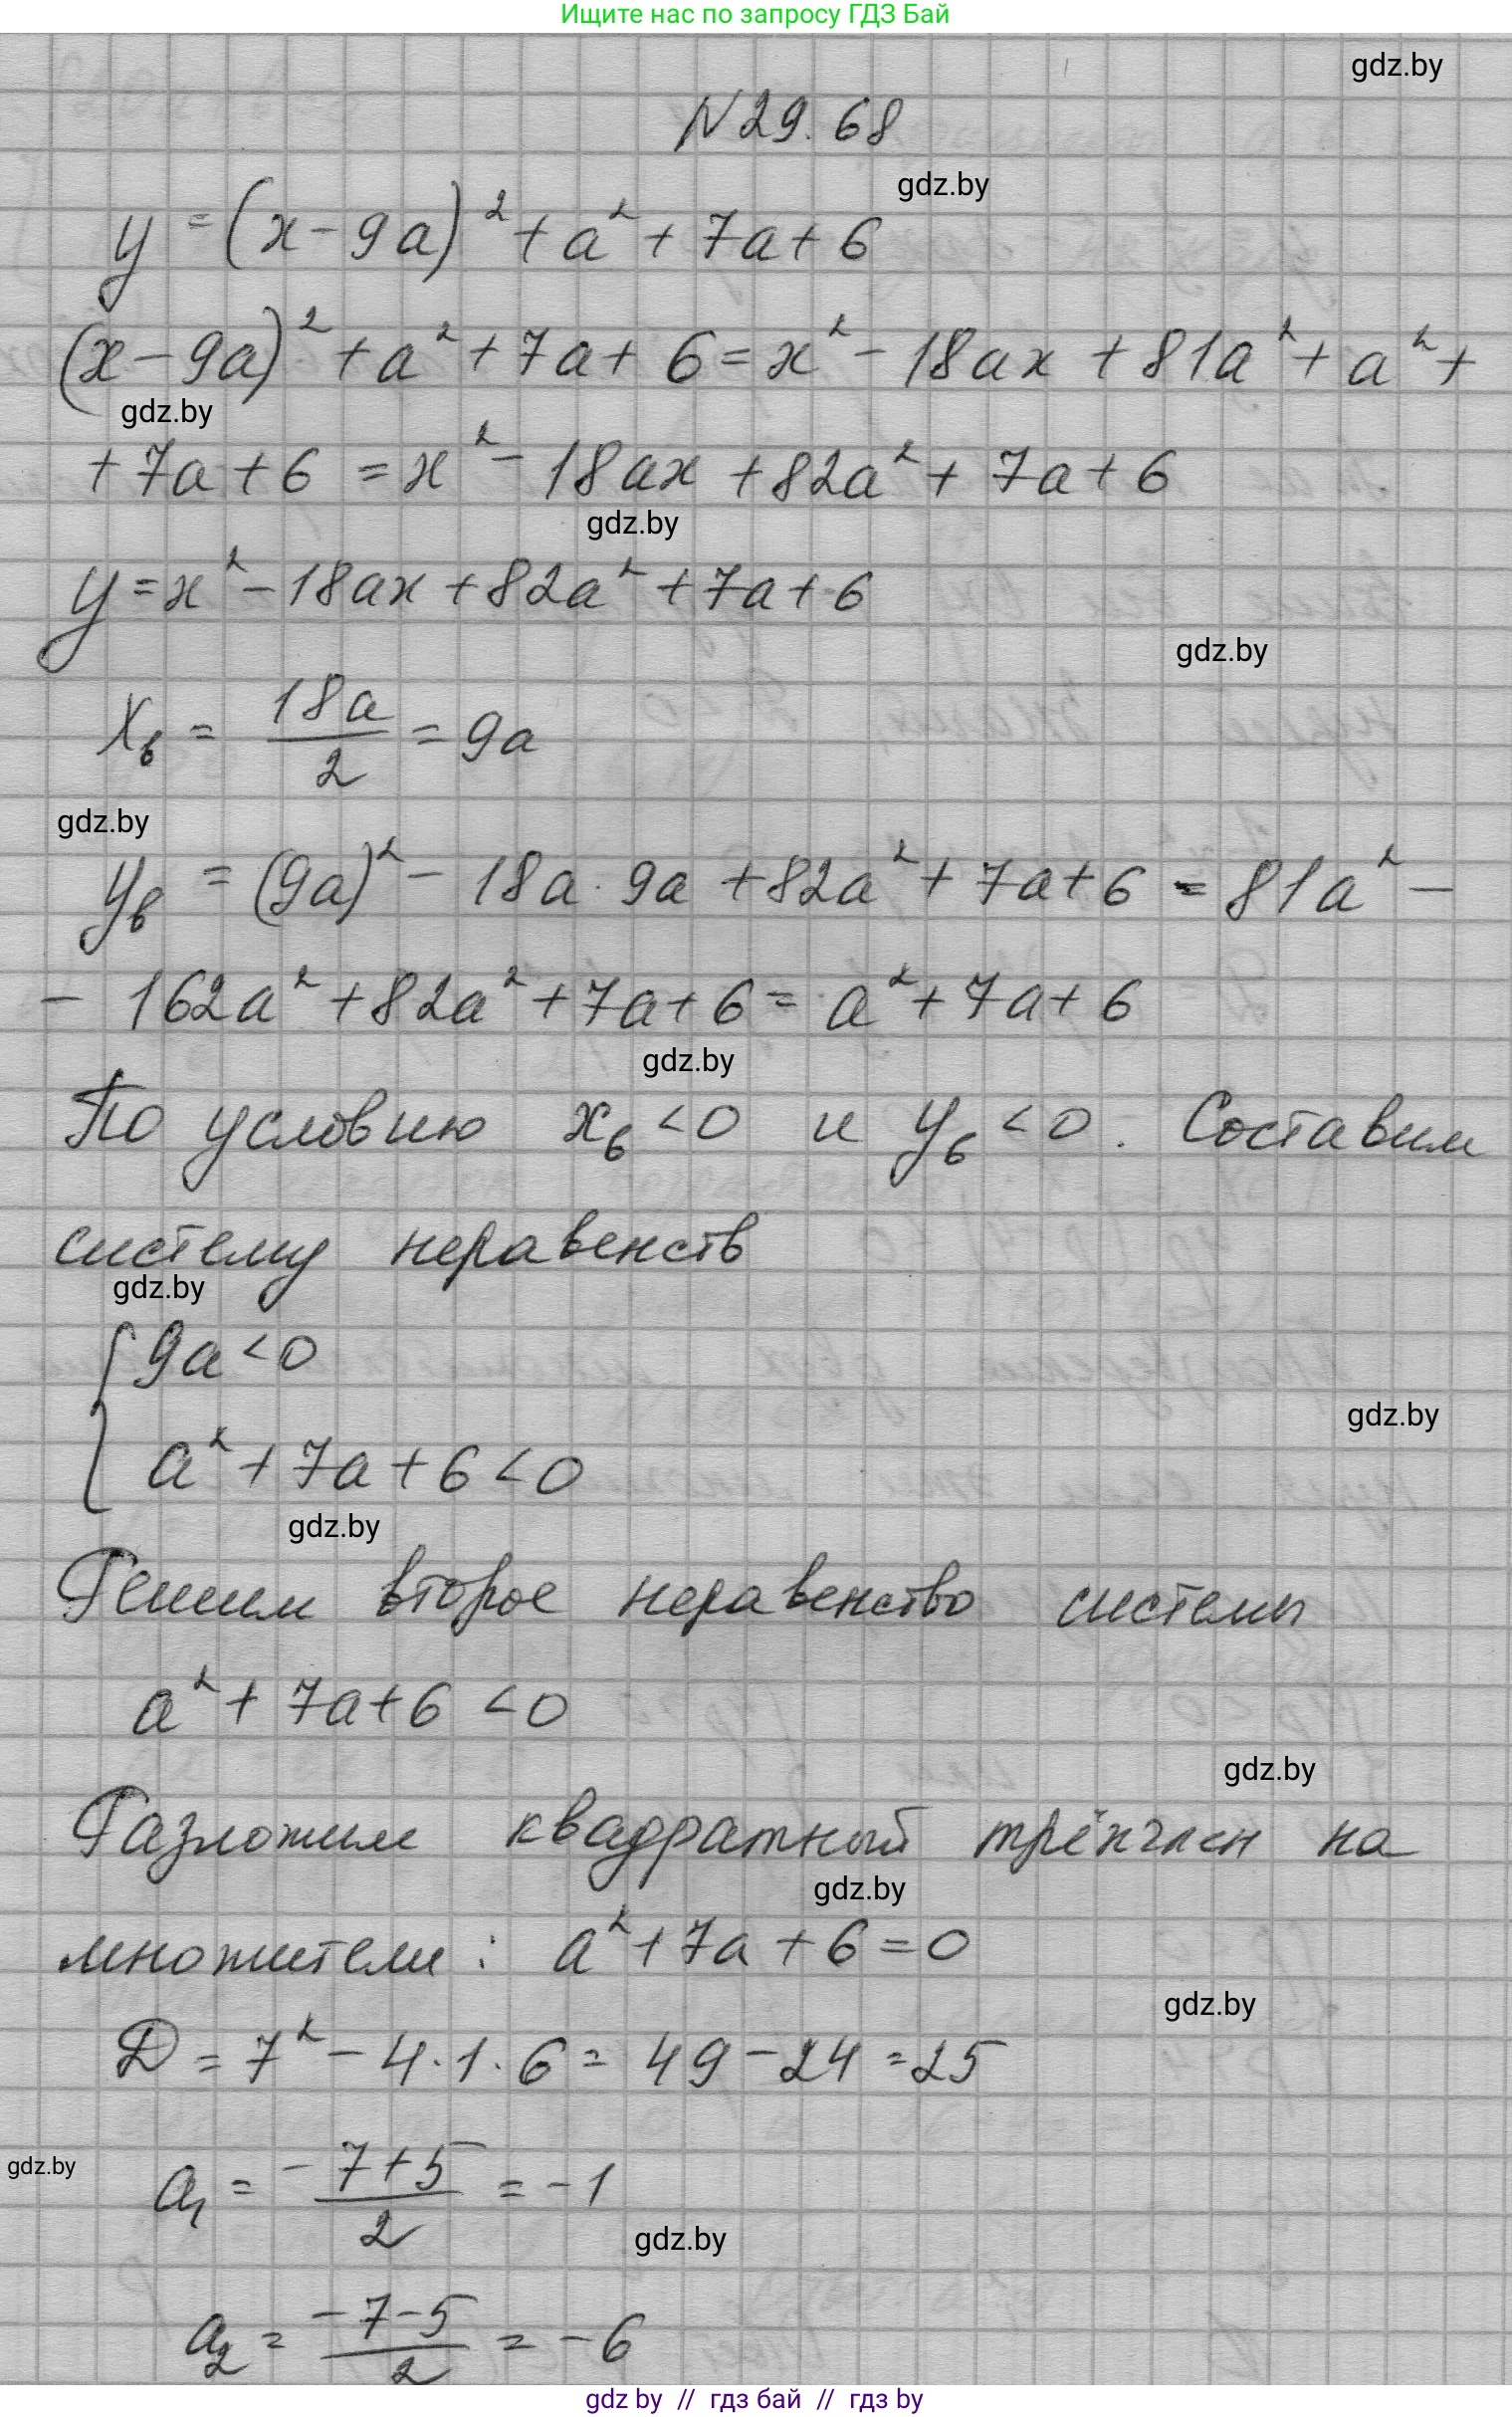 Ищите нас по запросу ГДЗ Бай
gdz.by
N 29.68
gdz.by
y = (x - 9a)² + a² + 7a + 6
(x - 9a)² + a² + 7a + 6 = x² - 18ax + 81a² + a² +
gdz.by
+ 7a + 6 = x² - 18ax + 82a² + 7a + 6
gdz.by
y = x² - 18ax + 82a² + 7a + 6
gdz.by
xв = 18a/2 = 9a
gdz.by
yв = (9a)² - 18a · 9a + 82a² + 7a + 6 = 81a² -
- 162a² + 82a² + 7a + 6 = a² + 7a + 6
gdz.by
По условию xв < 0 и yв < 0. Составим
систему неравенств
gdz.by
{ 9a < 0
gdz.by
a² + 7a + 6 < 0
gdz.by
Решим второе неравенство системы
a² + 7a + 6 < 0
gdz.by
Разложим квадратный трёхчлен на
gdz.by
множители: a² + 7a + 6 = 0
gdz.by
D = 7² - 4 · 1 · 6 = 49 - 24 = 25
gdz.by
a₁ = (-7+5)/2 = -1
gdz.by
a₂ = (-7-5)/2 = -6
gdz by // гдз бай // гдз by